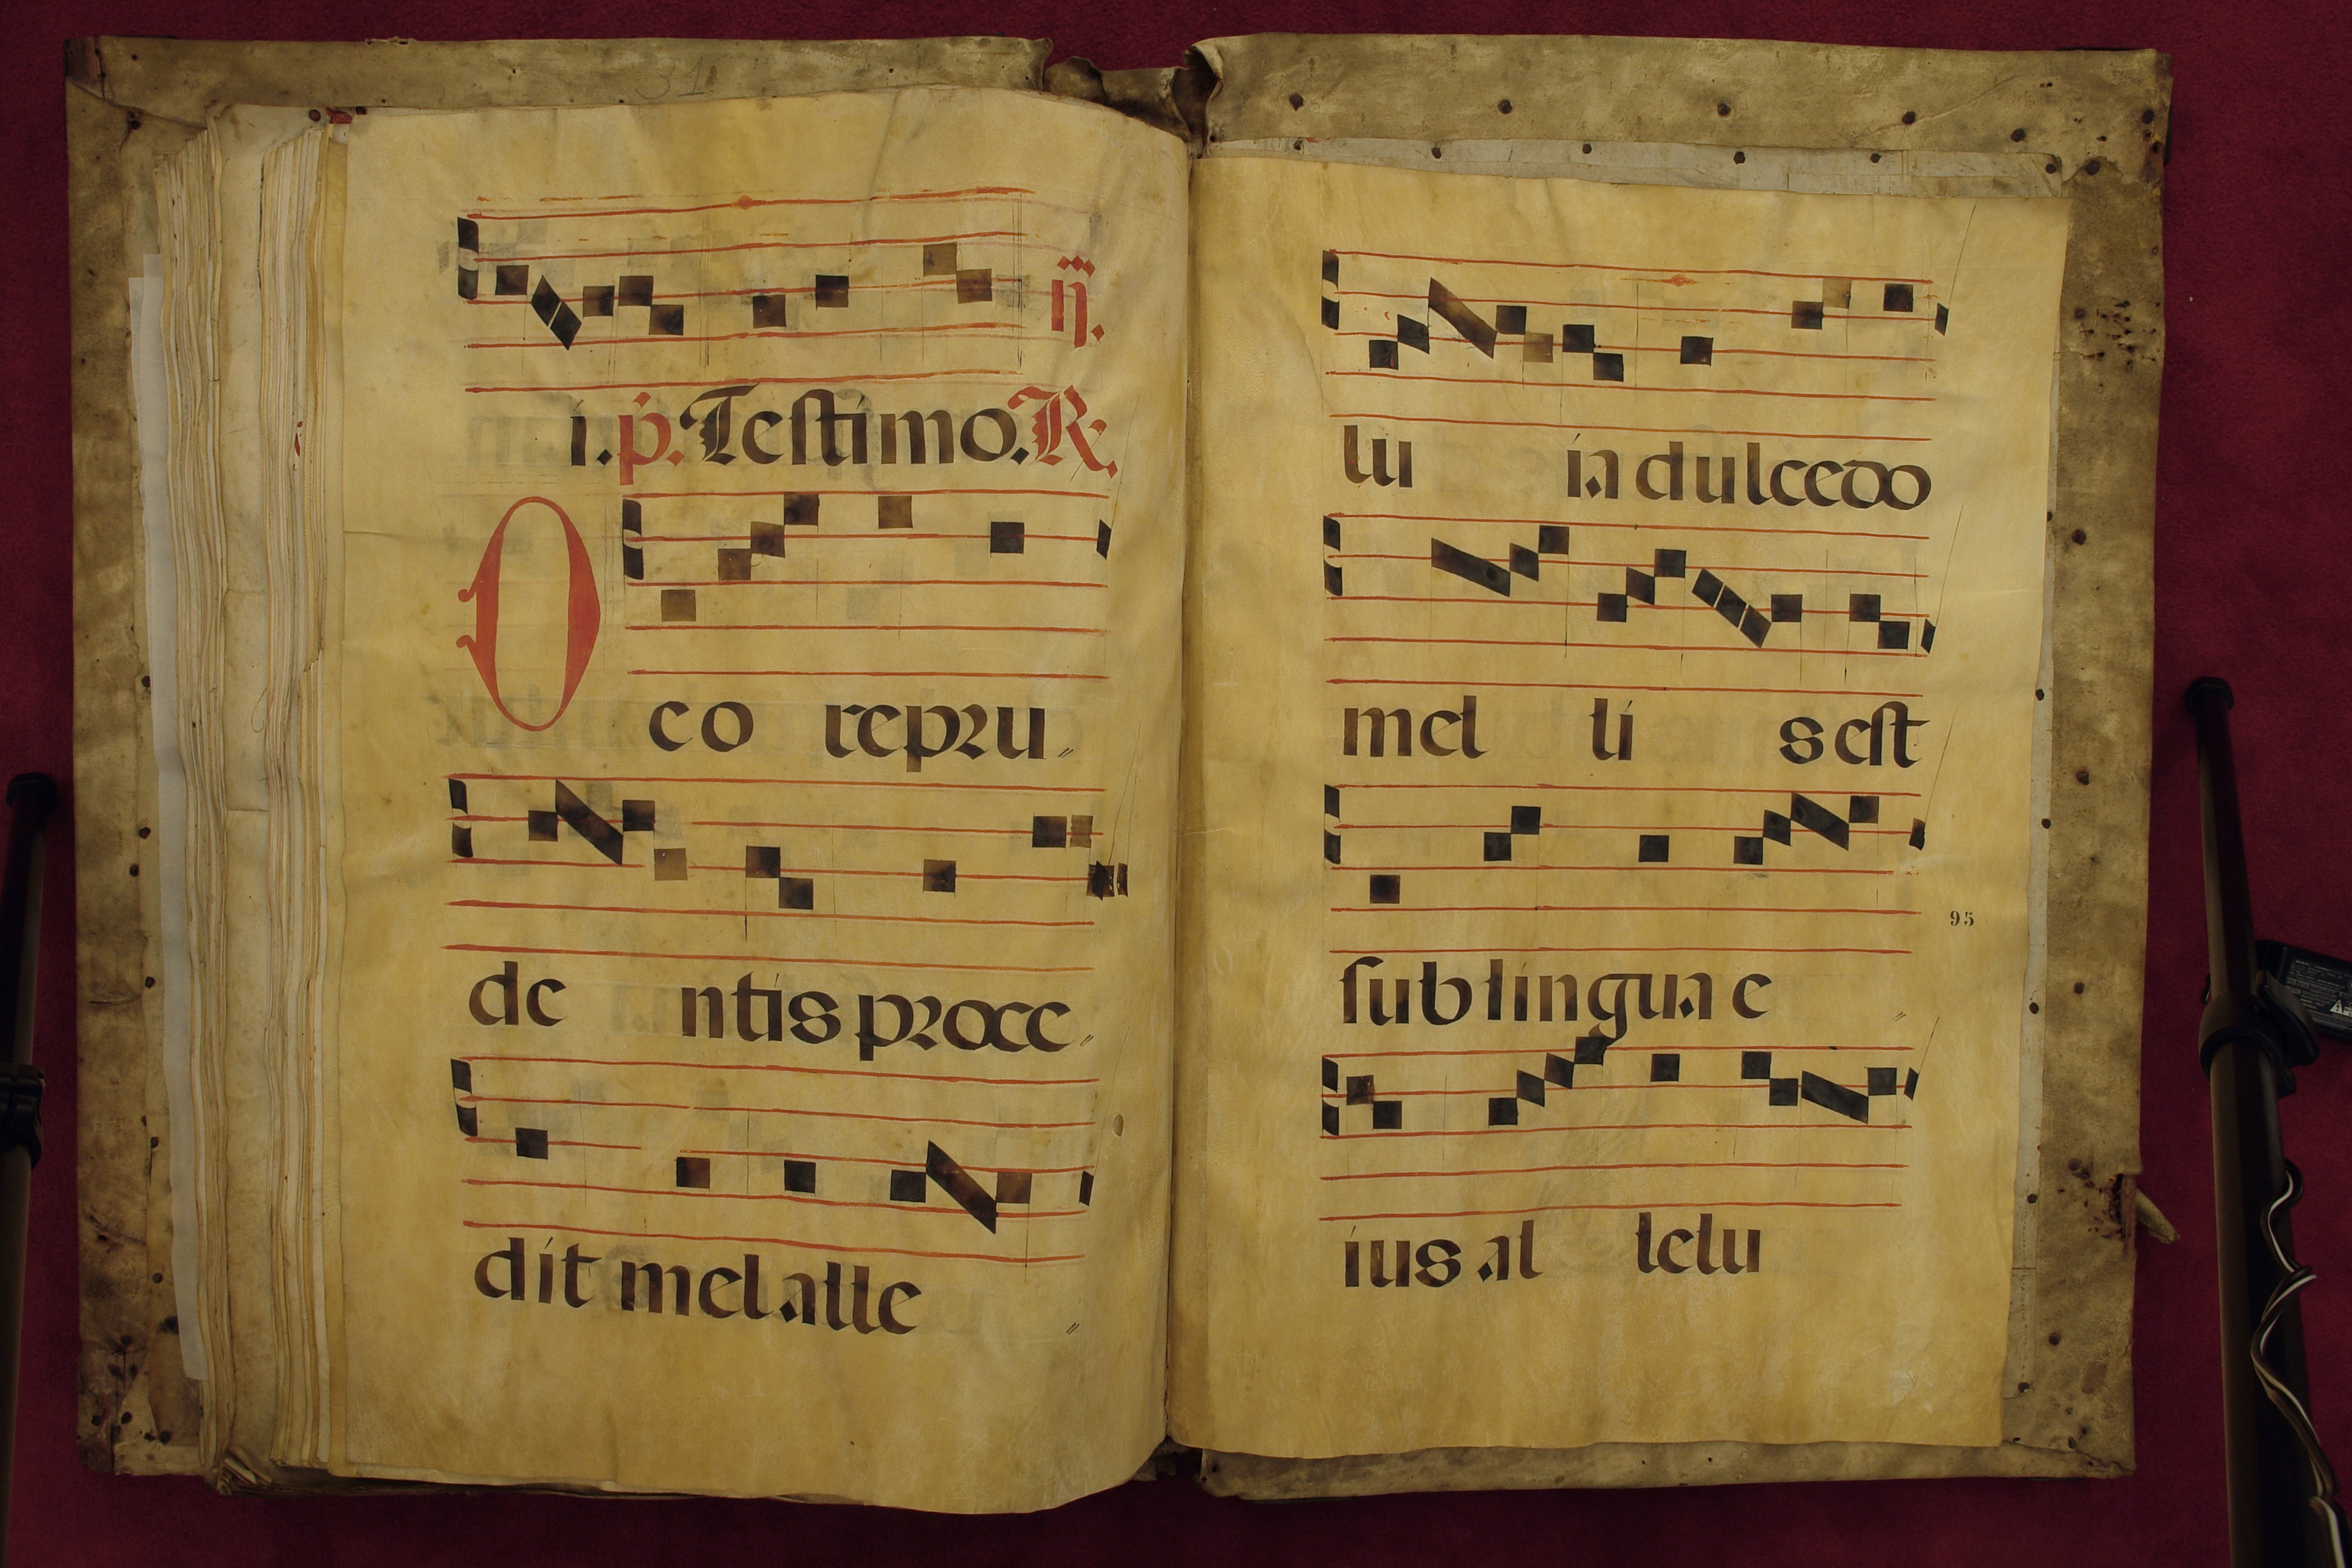 iij.
i. p. Testimo. R.
O co repru
de ntis proce
dit mel alle
lu ia dulcedo
mel li s est
95
sub lingua e
ius al lelu